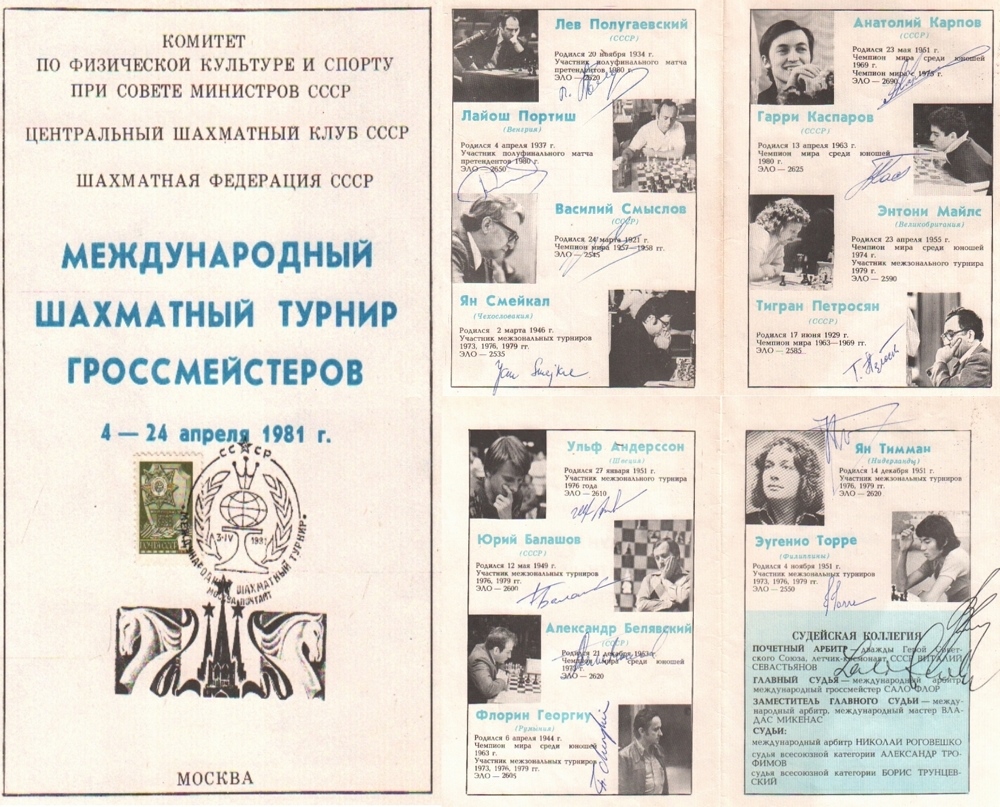 КОМИТЕТ
ПО ФИЗИЧЕСКОЙ КУЛЬТУРЕ И СПОРТУ
ПРИ СОВЕТЕ МИНИСТРОВ СССР
ЦЕНТРАЛЬНЫЙ ШАХМАТНЫЙ КЛУБ СССР
ШАХМАТНАЯ ФЕДЕРАЦИЯ СССР
МЕЖДУНАРОДНЫЙ
ШАХМАТНЫЙ ТУРНИР
ГРОССМЕЙСТЕРОВ
4 — 24 апреля 1981 г.
СССР
3·IV 1981
МЕЖДУНАРОДНЫЙ ШАХМАТНЫЙ ТУРНИР
МОСКВА ПОЧТАМТ
МОСКВА
Лев Полугаевский
(СССР)
Родился 20 ноября 1934 г.
Участник полуфинального матча
претендентов 1980 г.
ЭЛО — 2620
Лайош Портиш
(Венгрия)
Родился 4 апреля 1937 г.
Участник полуфинального матча
претендентов 1980 г.
ЭЛО — 2650
Василий Смыслов
(СССР)
Родился 24 марта 1921 г.
Чемпион мира 1957—1958 гг.
ЭЛО — 2545
Ян Смейкал
(Чехословакия)
Родился 2 марта 1946 г.
Участник межзональных турниров
1973, 1976, 1979 гг.
ЭЛО — 2535
Jan Smejkal
Анатолий Карпов
(СССР)
Родился 23 мая 1951 г.
Чемпион мира среди юношей
1969 г.
Чемпион мира с 1975 г.
ЭЛО — 2690
Гарри Каспаров
(СССР)
Родился 13 апреля 1963 г.
Чемпион мира среди юношей
1980 г.
ЭЛО — 2625
Энтони Майлс
(Великобритания)
Родился 23 апреля 1955 г.
Чемпион мира среди юношей
1974 г.
Участник межзонального турнира
1979 г.
ЭЛО — 2590
Тигран Петросян
(СССР)
Родился 17 июня 1929 г.
Чемпион мира 1963—1969 гг.
ЭЛО — 2585
Ульф Андерссон
(Швеция)
Родился 27 января 1951 г.
Участник межзонального турнира
1976 года
ЭЛО — 2610
Юрий Балашов
(СССР)
Родился 12 мая 1949 г.
Участник межзональных турниров
1976, 1979 гг.
ЭЛО — 2600
Александр Белявский
(СССР)
Родился 21 декабря 1953 г.
Чемпион мира среди юношей
1973 г.
ЭЛО — 2620
Флорин Георгиу
(Румыния)
Родился 6 апреля 1944 г.
Чемпион мира среди юношей
1963 г.
Участник межзональных турниров
1973, 1976, 1979 гг.
ЭЛО — 2605
Ян Тимман
(Нидерланды)
Родился 14 декабря 1951 г.
Участник межзональных турниров
1976, 1979 гг.
ЭЛО — 2620
Эугенио Торре
(Филиппины)
Родился 4 ноября 1951 г.
Участник межзональных турниров
1973, 1976, 1979 гг.
ЭЛО — 2550
СУДЕЙСКАЯ КОЛЛЕГИЯ
ПОЧЕТНЫЙ АРБИТР — дважды Герой Совет-
ского Союза, летчик-космонавт СССР ВИТАЛИЙ
СЕВАСТЬЯНОВ
ГЛАВНЫЙ СУДЬЯ — международный арбитр,
международный гроссмейстер САЛО ФЛОР
ЗАМЕСТИТЕЛЬ ГЛАВНОГО СУДЬИ — между-
народный арбитр, международный мастер ВЛА-
ДАС МИКЕНАС
СУДЬИ:
международный арбитр НИКОЛАЙ РОГОВЕШКО
судья всесоюзной категории АЛЕКСАНДР ТРО-
ФИМОВ
судья всесоюзной категории БОРИС ТРУНЦЕВ-
СКИЙ